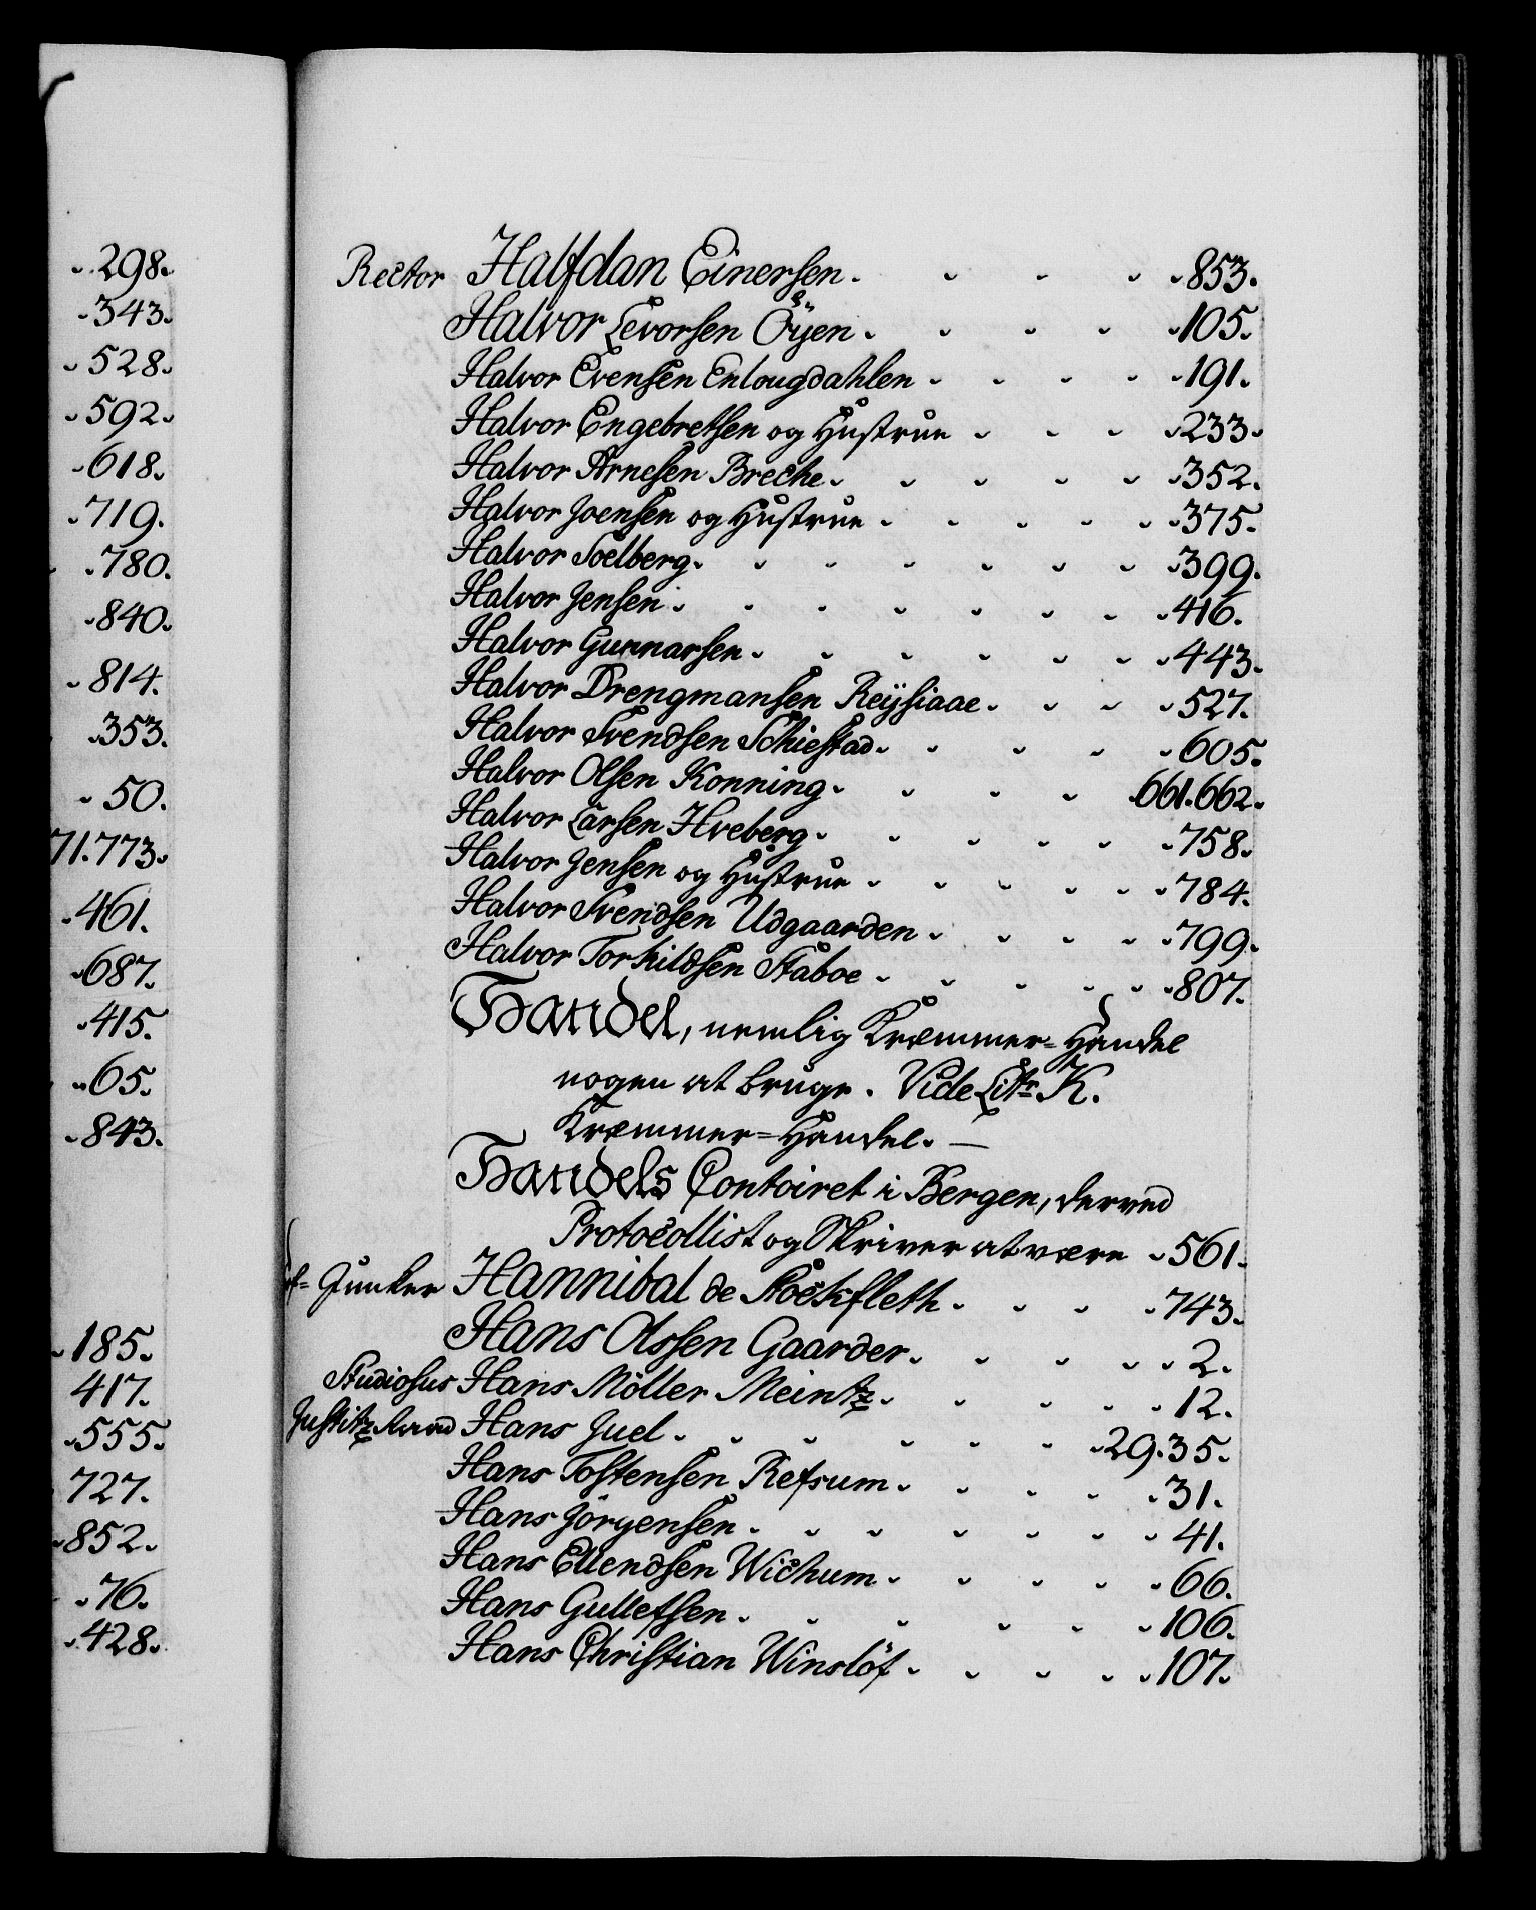 298.
343.
528.
592.
618.
719.
780.
840.
814.
353.
50.
71.773.
461.
687.
415.
65.
843.
185.
417.
555.
727.
852.
76.
428.
Rector Halfdan Einersen. 853.
Halvor Levorsen Öÿen. 105.
Halvor Evensen Enlougdahlen 191.
Halvor Engebretsen og Hustrue 233.
Halvor Arnesen Breche. 352.
Halvor Joensen og Hustrue. 375.
Halvor Soelberg. 399.
Halvor Jensen. 416.
Halvor Gunnarsen. 443.
Halvor Drengmansen Reÿsiaae. 527.
Halvor Svendsen Schiestad. 605.
Halvor Olsen Konning. 661.662.
Halvor Larsen Hveberg. 758.
Halvor Jensen og Hustrue. 784.
Halvor Svendsen Udgaarden. 799.
Halvor Torkildsen Staboe. 807.
Handel, nemlig Kræmmer-Handel
nogen at bruge. Vide Litr K.
Kræmmer-Handel. —
Handels Contoiret i Bergen, derved
Protocollist og Skriver at være 561.
Junker Hannibal de Stockfleth. 743.
Hans Olssen Gaarder. 2.
Studiosus Hans Möller Meintz. 12.
Justitz Raad Hans Juel. 29.35.
Hans Tostensen Refsum. 31.
Hans Jörgensen. 41.
Hans Ellendsen Wichum. 66.
Hans Gulletsen. 106.
Hans Christian Winslöf. 107.